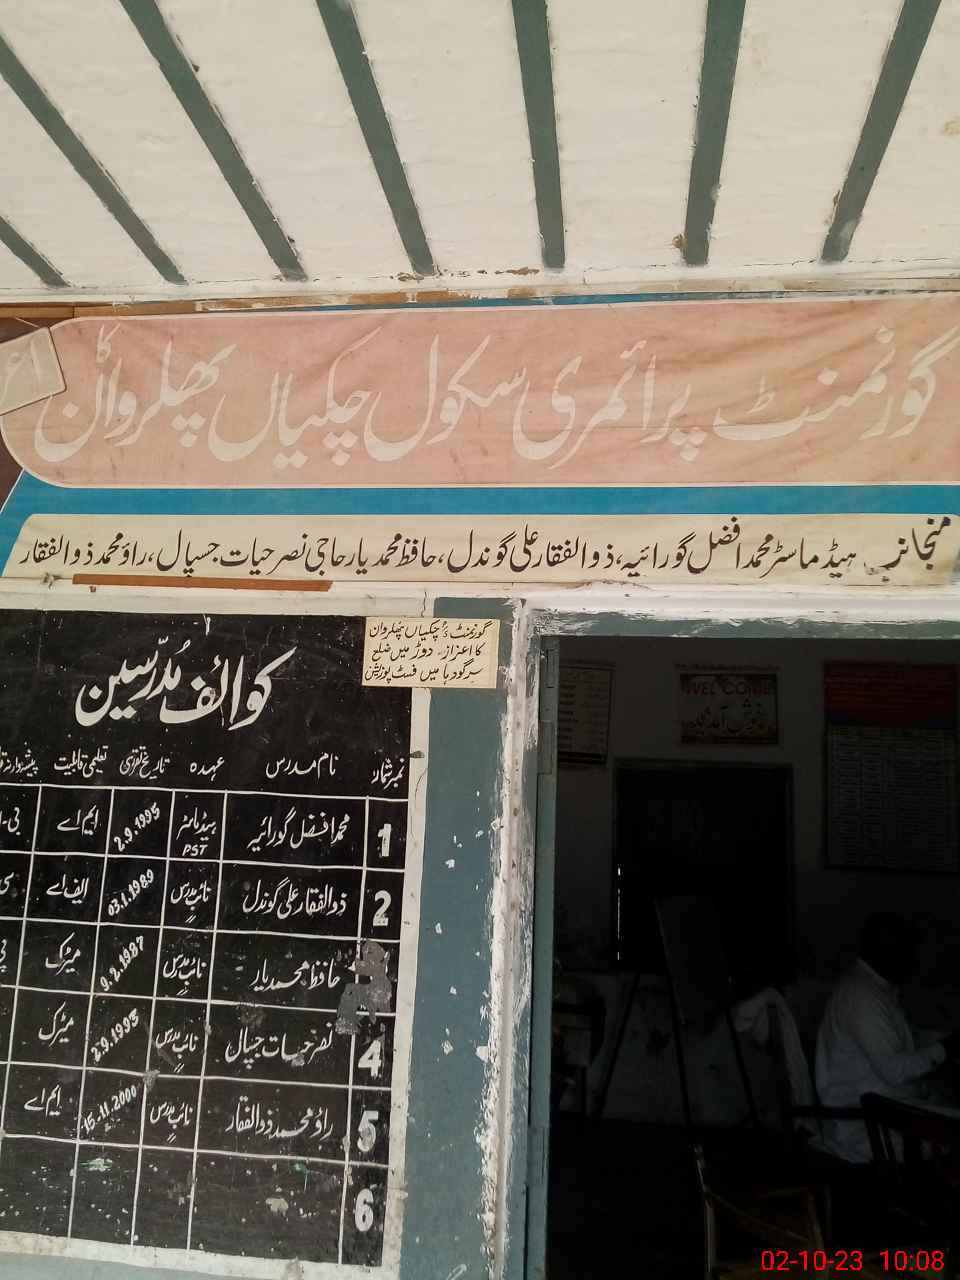 گورنمنٹ پرائمری سکول چکیاں پھلرواں
منجانب ہیڈ ماسٹر محمد افضل گورائیہ، ذوالفقار علی گوندل، حافظ محمد یار حاجی نصر حیات جسپال، راؤ محمد ذوالفقار
گورنمنٹ چکیاں پھلروان
کا اعزاز۔ دوڑ میں ضلع
سرگودہا میں فسٹ پوزیشن
کوائف مُدرّسین
نمبر شمار نام مدرس عہدہ تاریخ تقرری تعلیمی قابلیت
1 محمد افضل گورائیہ ہیڈ ماسٹر PST 2.9.1995 ایم اے
2 ذوالفقار علی گوندل نائب مدرس 03.1.1989 ایف اے
حافظ محمد یار نائب مدرس 9.2.1987 میٹرک
4 نصر حیات جسپال نائب مدرس 2.9.1993 میٹرک
5 راؤ محمد ذوالفقار نائب مدرس 15.11.2000 ایم اے
6
WELCOME
خوش آمدید
02-10-23 10:08